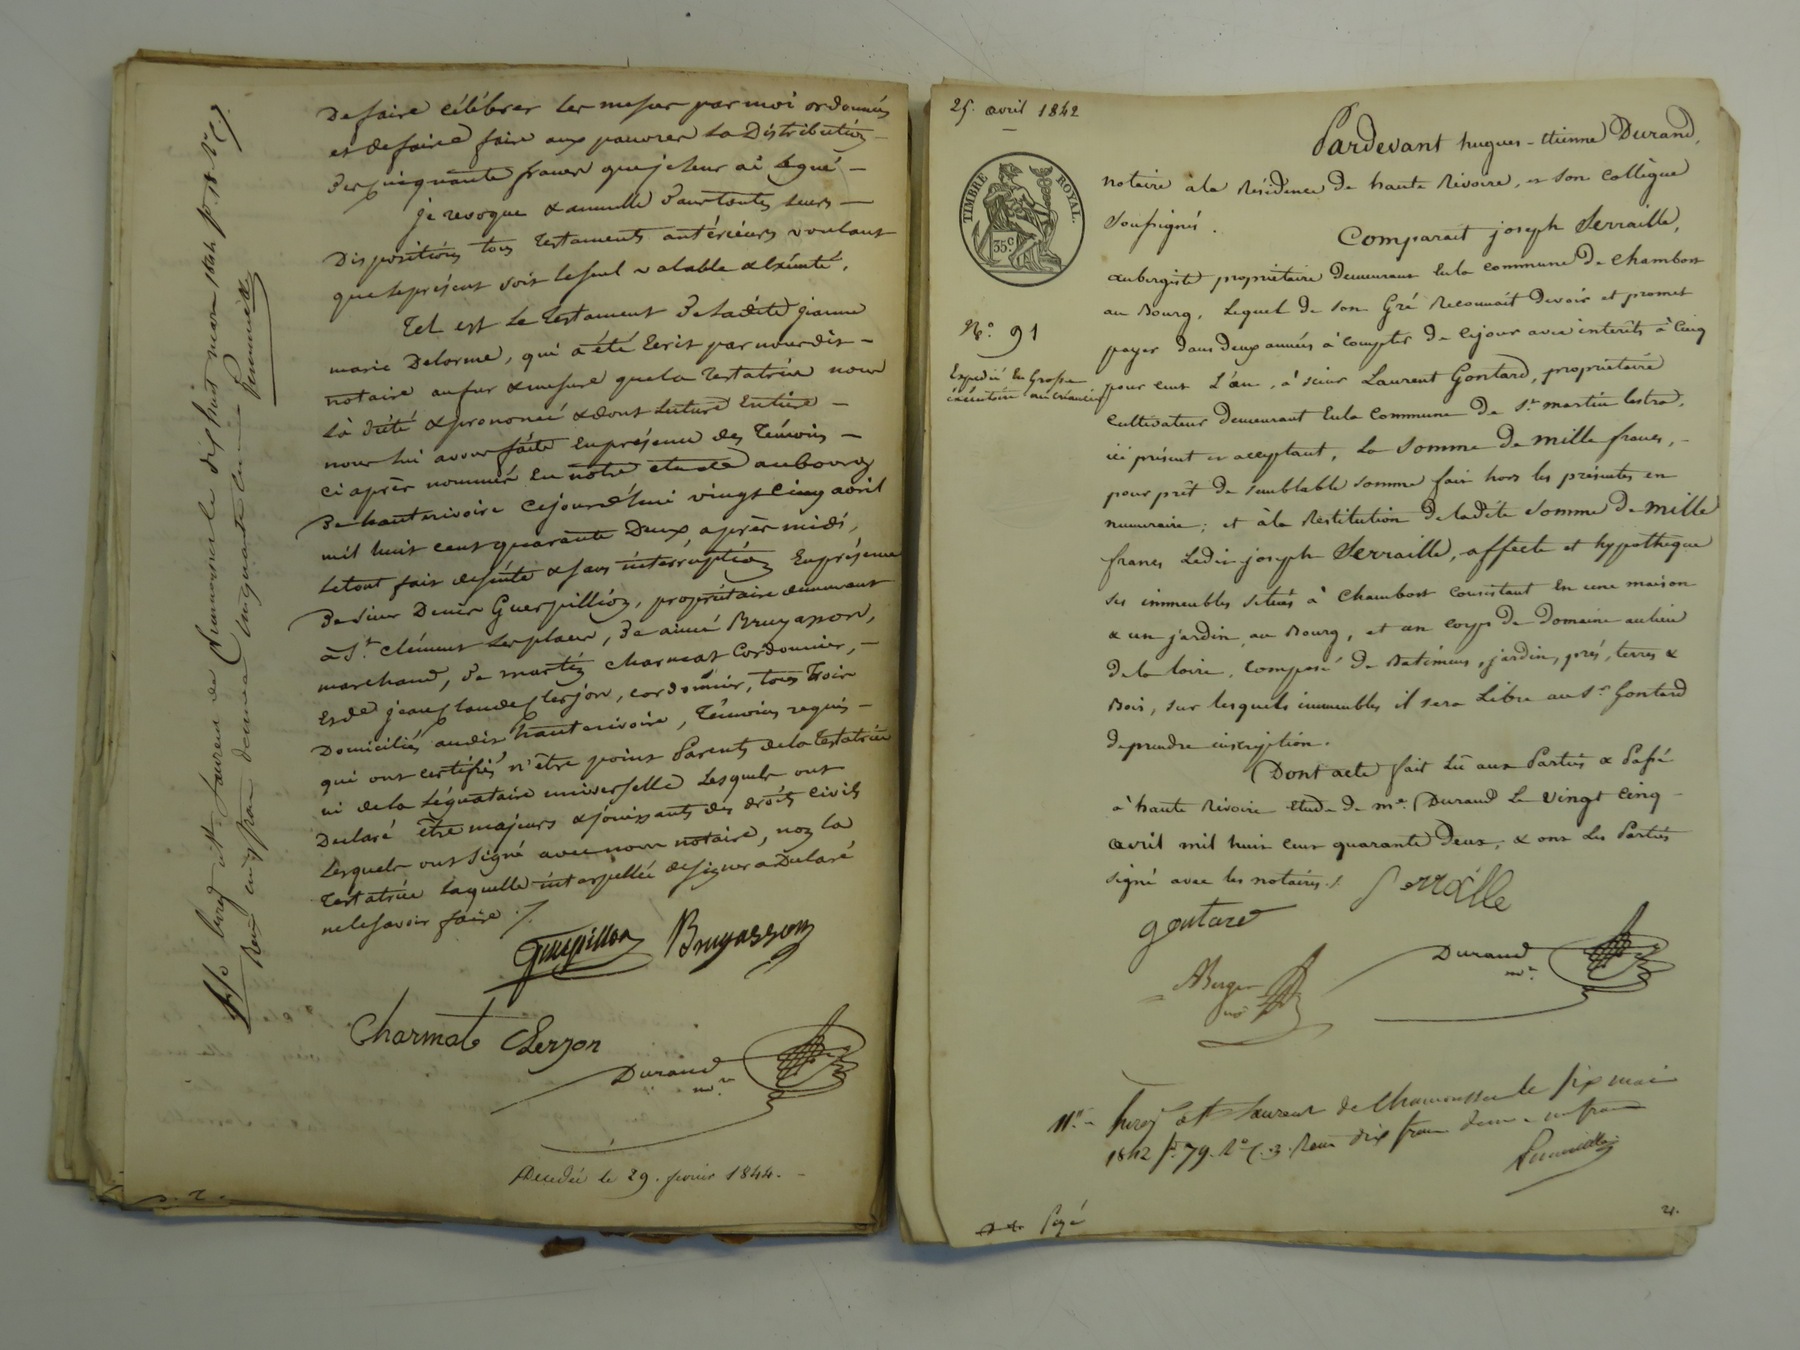 De faire célébrer les messes par moi ordonnées
et de faire faire aux pauvres la Distribution
Des cinquante francs que je leur ai légué —
je revoque & annulle Dans toutes leurs —
Dispositions tous Testaments antérieurs voulant
que le présent soit le seul valable & éxécuté.
Tel est Le Testament De ladite jeanne
marie Delorme, qui a été Ecrit par nous dit —
notaire au fur & mesure que la Testatrice nous
l'a dicté & prononcé & dont Lecture Entière —
nous lui avons faite En présence des Témoins —
ci après nommés En notre étude au bourg
De hauterivoire Cejourd'hui vingt Cinq avril
mil huit cent quarante Deux, après midi,
Le tout fait de suite & sans interruption En présence
De Sieur Denis Guerpillion, propriétaire demeurant
à St. Clément Les places, De aimé Bruyasson,
marchand, De martin Charmat Cordonnier, —
Et de jean Claude Clerjon, cordonnier, tous Trois
Domiciliés audit hauterivoire, Témoins requis —
qui ont certifiés n'être point Parents de la Testatrice
ni de la Légataire universelle Lesquels ont
Declaré être majeurs & jouissants des droits civils
Lesquels ont Signé avec nous notaire, non la
Testatrice Laquelle interpellée de signer a Déclaré
ne le savoir faire ./.
Guerpillon Bruyasson
Charmat Clerjon
Durand
nore
Décédée le 29. fevrier 1844. —
Enreg. à St. Laurent de Chamousset le dix huit mars 1844
Reçu cinq francs decime cinquante centimes
25. avril 1842
TIMBRE ROYAL.
35c
No. 91
Expédié En Grosse
exécutoire au créancier
Pardevant hugues-étienne Durand,
notaire à la Résidence De haute Rivoire, et son Collègue
Soussignés.
Comparait joseph Serraille,
aubergiste propriétaire Demeurant En la commune De Chambost
au Bourg, Lequel de son Gré Reconnait Devoir et promet
payer dans deux années à Compter De ce jour avec intérêts à Cinq
pour cent L'an, à sieur Laurent Gontard, propriétaire
Cultivateur Demeurant En la Commune De St. martin lestra,
ici présent et acceptant, La Somme De mille francs, —
pour prêt De semblable somme fait hors les présentes en
numéraire; et à la Restitution De ladite Somme De mille
francs Ledit joseph Serraille, affecte et hypothèque
ses immeubles situés à Chambost Consistant En une maison
& un jardin au Bourg, et un corps De Domaine au lieu
de la loire, composé De Batiments, jardin, prés, terres &
Bois, sur lesquels immeubles il sera Libre au Sr. Gontard
de prendre inscription.
Dont acte fait Lu aux Parties & Passé
à haute Rivoire étude De me. Durand Le vingt Cinq
avril mil huit cent quarante Deux, & ont Les Parties
signé avec les notaires./.
Serraille
gontard
Durand
nre.
ABerger
nore
Enreg. à St. Laurent de Chamousset le six mai
1842 fo. 79. Ro. C. 3. Reçu dix francs decime un franc
Payé